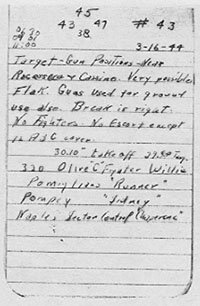 45
43 47 # 43
38
11:00 3-16-44
Target-Gun Positions Near
Cassino. Very possible
Flak. Guns used for ground
use also. Break is right.
No Fighters. No Escort except
as ADC cover.
take off
320 Olive "G" Fyster Willie
"Runner"
Pompey "Sidney"
Naples Sector Control